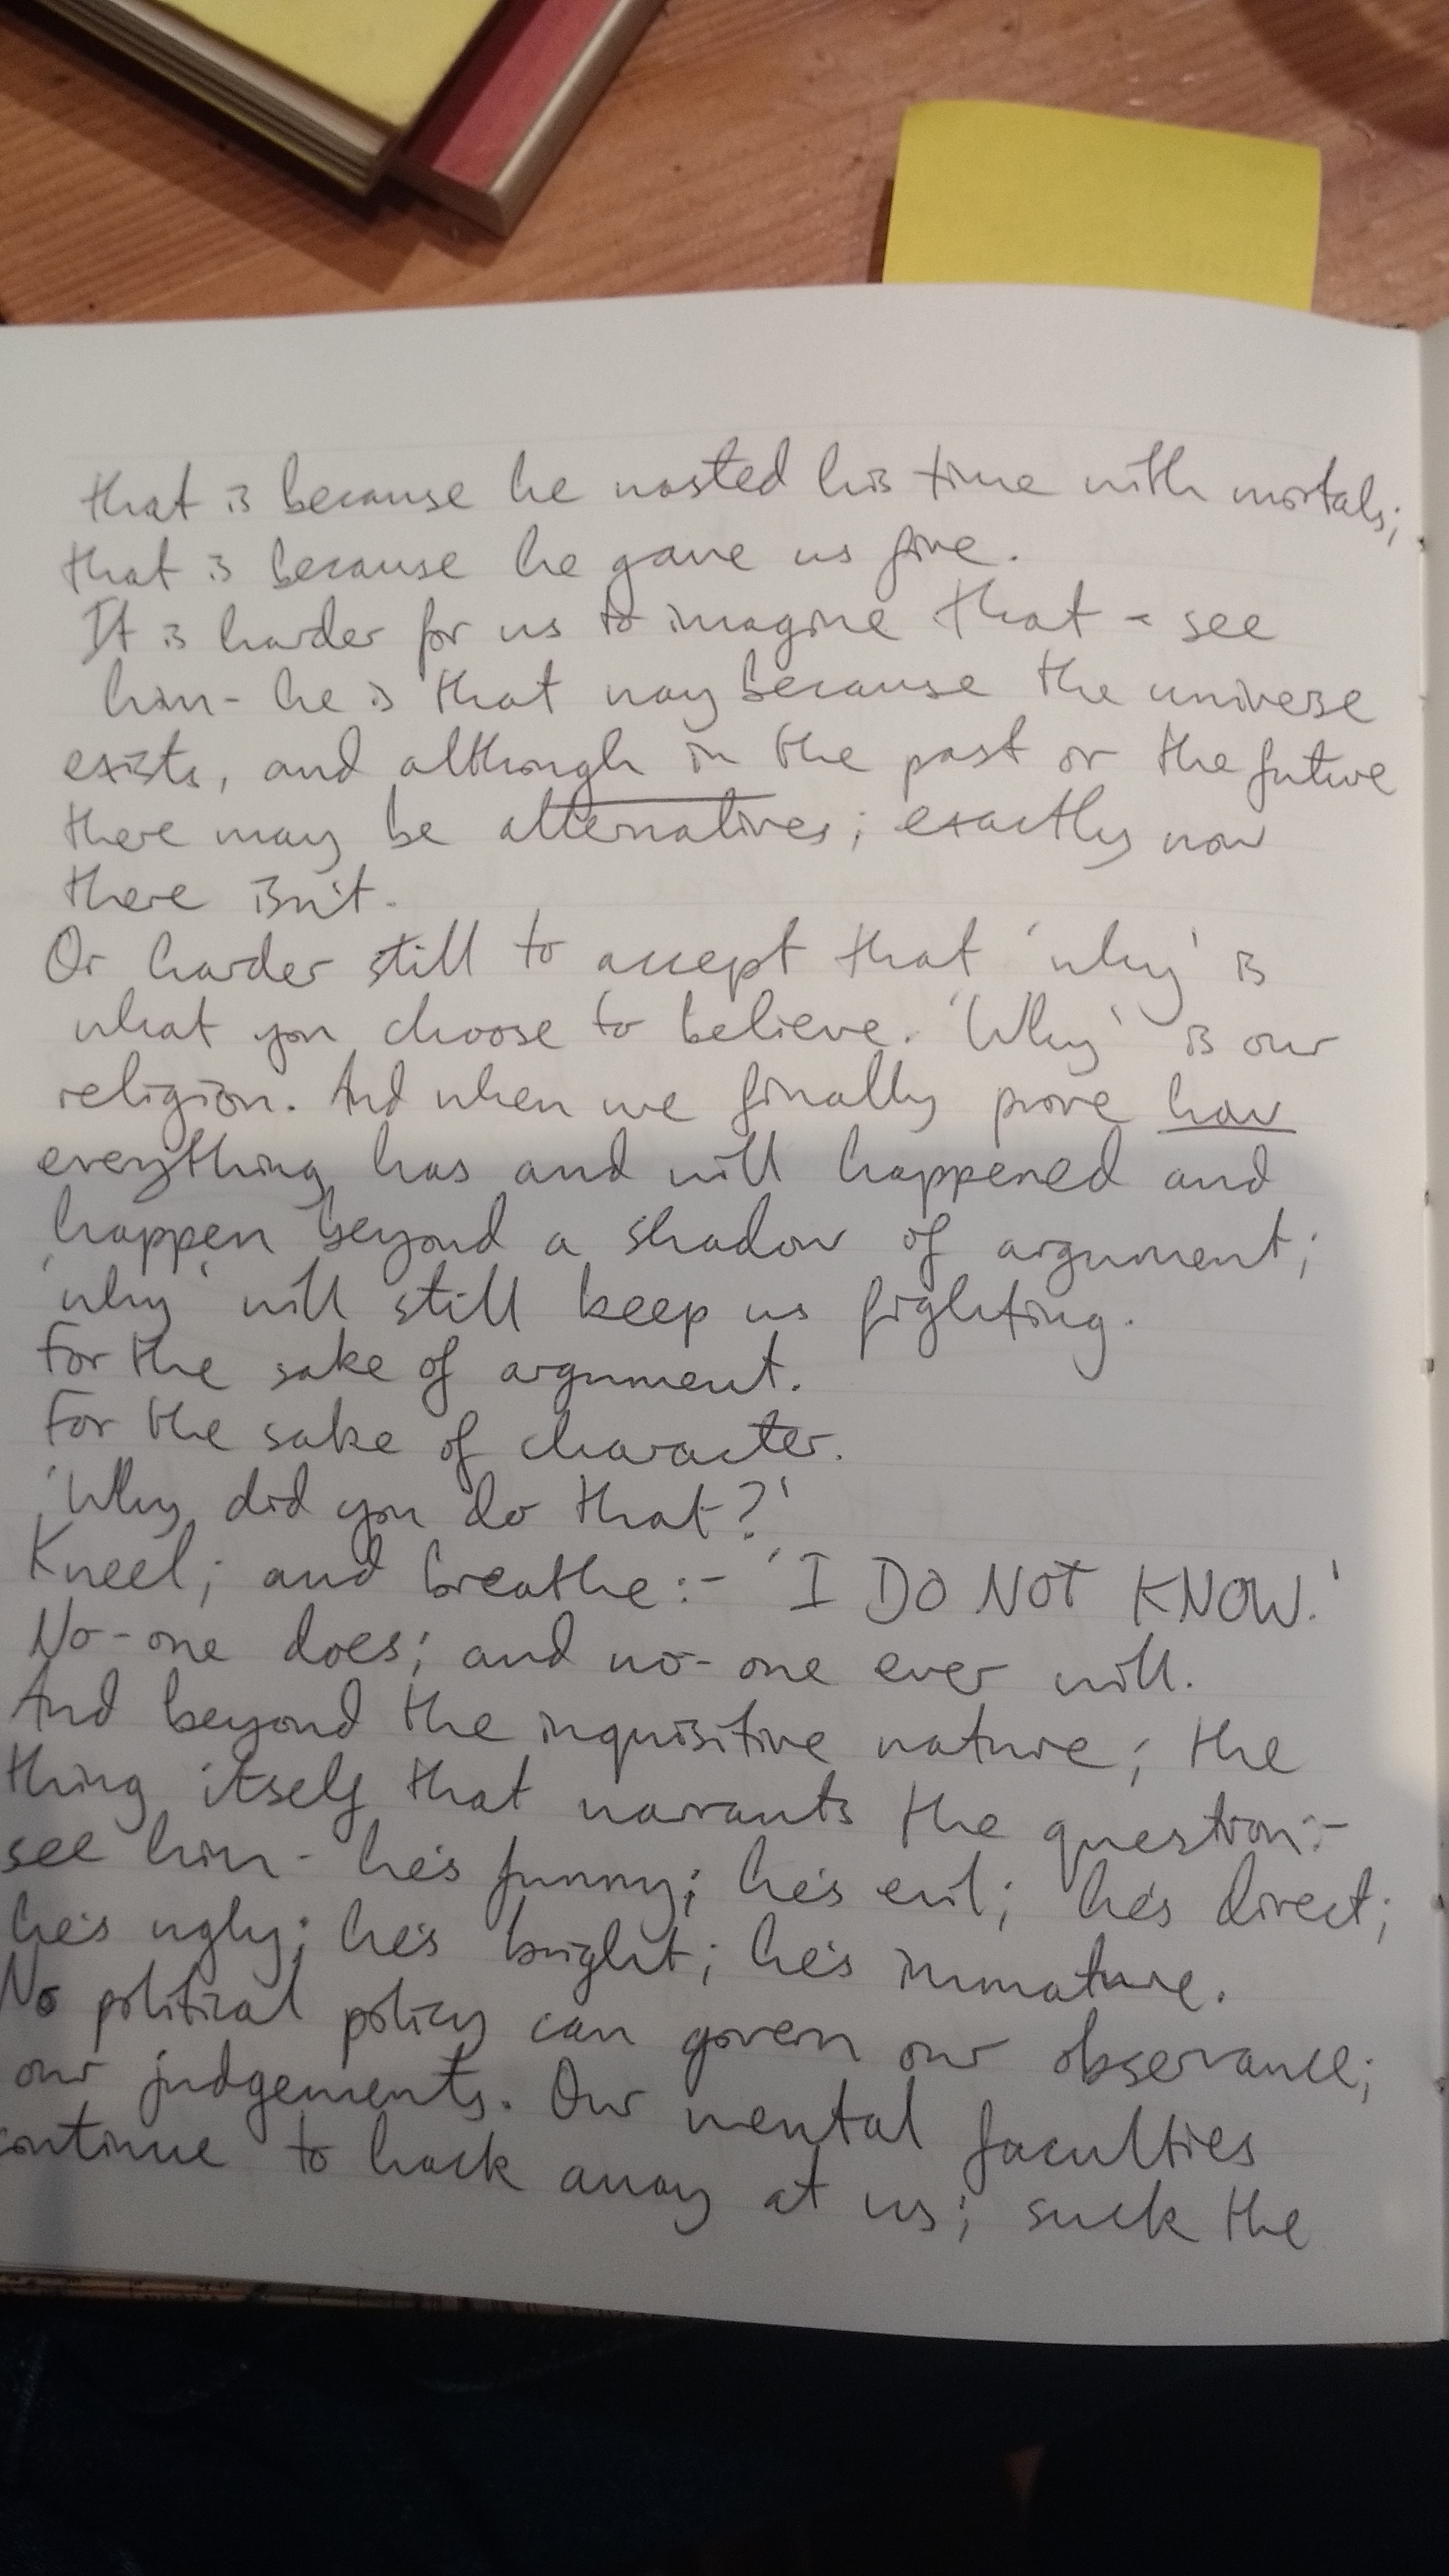 that is because he wasted his time with mortals;
that is because he gave us fire.
It is harder for us to imagine that - see
him - he is that way because the universe
exists, and although in the past or the future
there may be alternatives; exactly now
there isn't.
Or harder still to accept that 'why' is
what you choose to believe. 'Why' is our
religion. And when we finally prove how
everything has and will happened and
happen beyond a shadow of argument;
'why' will still keep us fighting.
For the sake of argument.
For the sake of character.
'Why did you do that?'
Kneel; and breathe:- 'I DO NOT KNOW.'
No-one does; and no-one ever will.
And beyond the inquisitive nature; the
thing itself that warrants the question:-
see him - he's funny; he's evil; he's direct;
he's ugly; he's bright; he's immature.
No political policy can govern our observance;
our judgements. Our mental faculties
continue to hack away at us; suck the